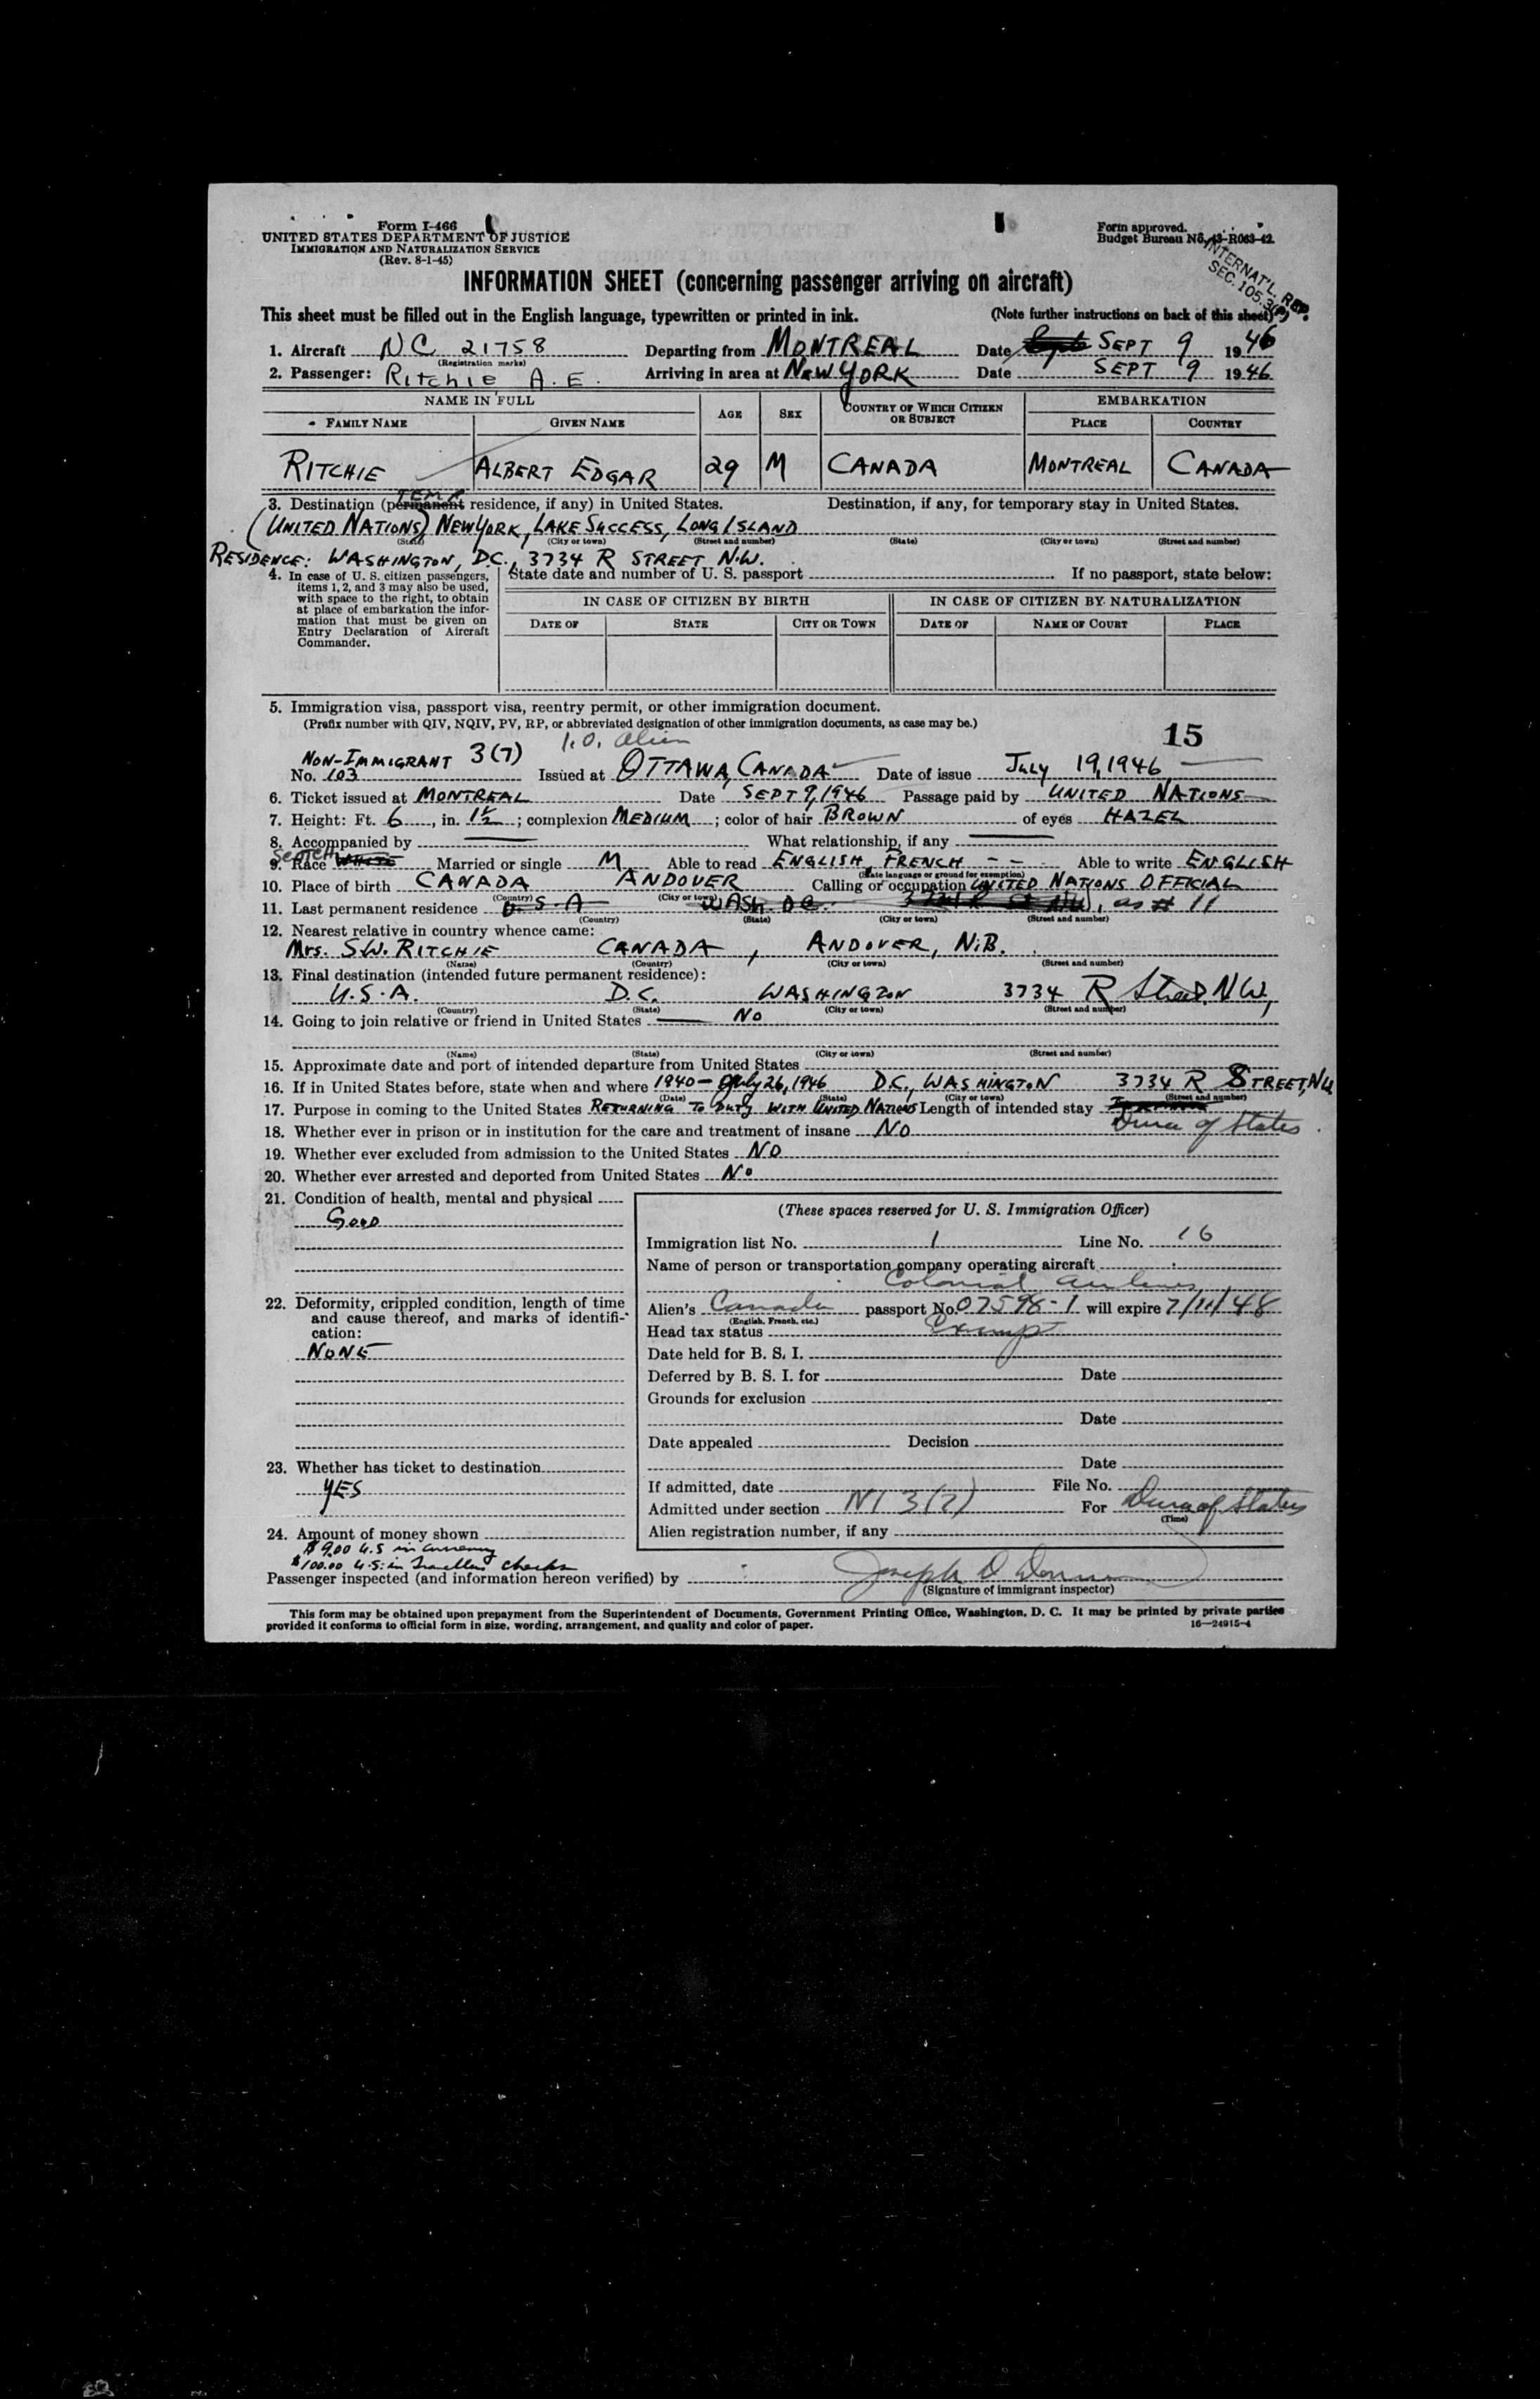 Form I-466
UNITED STATES DEPARTMENT OF JUSTICE
IMMIGRATION AND NATURALIZATION SERVICE
(Rev. 8-1-45)
Form approved.
Budget Bureau No. 43-R063-42.
INTERNAT'L. REP.
SEC. 105.3
INFORMATION SHEET (concerning passenger arriving on aircraft)
This sheet must be filled out in the English language, typewritten or printed in ink. (Note further instructions on back of this sheet)
1. Aircraft NC 21758 Departing from MONTREAL Date SEPT 9 1946
(Registration marks)
2. Passenger: Ritchie, A. E. Arriving in area at NEW YORK Date SEPT 9 1946
NAME IN FULL AGE SEX COUNTRY OF WHICH CITIZEN OR SUBJECT EMBARKATION
FAMILY NAME GIVEN NAME PLACE COUNTRY
RITCHIE ALBERT EDGAR 29 M CANADA MONTREAL CANADA
TEMP
3. Destination (permanent residence, if any) in United States. Destination, if any, for temporary stay in United States.
(UNITED NATIONS) NEW YORK, LAKE SUCCESS, LONG ISLAND
(State) (City or town) (Street and number) (State) (City or town) (Street and number)
RESIDENCE: WASHINGTON, D.C., 3734 R STREET N.W.
4. In case of U. S. citizen passengers, items 1, 2, and 3 may also be used, with space to the right, to obtain at place of embarkation the information that must be given on Entry Declaration of Aircraft Commander.
State date and number of U. S. passport If no passport, state below:
IN CASE OF CITIZEN BY BIRTH IN CASE OF CITIZEN BY NATURALIZATION
DATE OF STATE CITY OR TOWN DATE OF NAME OF COURT PLACE
5. Immigration visa, passport visa, reentry permit, or other immigration document.
(Prefix number with QIV, NQIV, PV, RP, or abbreviated designation of other immigration documents, as case may be.)
15
I.O. Alien
NON-IMMIGRANT 3(7)
No. 103 Issued at OTTAWA, CANADA Date of issue July 19, 1946
6. Ticket issued at MONTREAL Date SEPT 9, 1946 Passage paid by UNITED NATIONS
7. Height: Ft. 6, in. 1½; complexion MEDIUM; color of hair BROWN of eyes HAZEL
8. Accompanied by What relationship, if any
SCOTCH
9. Race WHITE Married or single M Able to read ENGLISH, FRENCH - - Able to write ENGLISH
(State language or ground for exemption)
10. Place of birth CANADA ANDOVER Calling or occupation UNITED NATIONS OFFICIAL
(Country) (City or town)
11. Last permanent residence U.S.A WASH. DC. 3734 R St NW, as # 11
(Country) (State) (City or town) (Street and number)
12. Nearest relative in country whence came:
Mrs. S.W. RITCHIE CANADA, ANDOVER, N.B.
(Name) (Country) (City or town) (Street and number)
13. Final destination (intended future permanent residence):
U.S.A. D.C. WASHINGTON 3734 R Street, NW,
(Country) (State) (City or town) (Street and number)
14. Going to join relative or friend in United States No
(Name) (State) (City or town) (Street and number)
15. Approximate date and port of intended departure from United States
16. If in United States before, state when and where 1940 - July 26, 1946 D.C., WASHINGTON 3734 R STREET, NW
(Date) (State) (City or town) (Street and number)
17. Purpose in coming to the United States RETURNING TO DUTY WITH UNITED NATIONS Length of intended stay
Dura of Status
18. Whether ever in prison or in institution for the care and treatment of insane No
19. Whether ever excluded from admission to the United States NO
20. Whether ever arrested and deported from United States No
21. Condition of health, mental and physical
GOOD
22. Deformity, crippled condition, length of time and cause thereof, and marks of identification:
NONE
23. Whether has ticket to destination
YES
24. Amount of money shown
$9.00 U.S in currency
$100.00 U.S. in Travellers Checks
(These spaces reserved for U. S. Immigration Officer)
Immigration list No. 1 Line No. 16
Name of person or transportation company operating aircraft
Colonial Airlines
Alien's Canada passport No. 07598-1 will expire 7/11/48
(English, French, etc.)
Head tax status Exempt
Date held for B. S. I.
Deferred by B. S. I. for Date
Grounds for exclusion
Date
Date appealed Decision
Date
If admitted, date File No.
Admitted under section NI 3(7) For Dura of Status
(Time)
Alien registration number, if any
Passenger inspected (and information hereon verified) by Joseph D
(Signature of immigrant inspector)
This form may be obtained upon prepayment from the Superintendent of Documents, Government Printing Office, Washington, D. C. It may be printed by private parties
provided it conforms to official form in size, wording, arrangement, and quality and color of paper.
16—24915-4